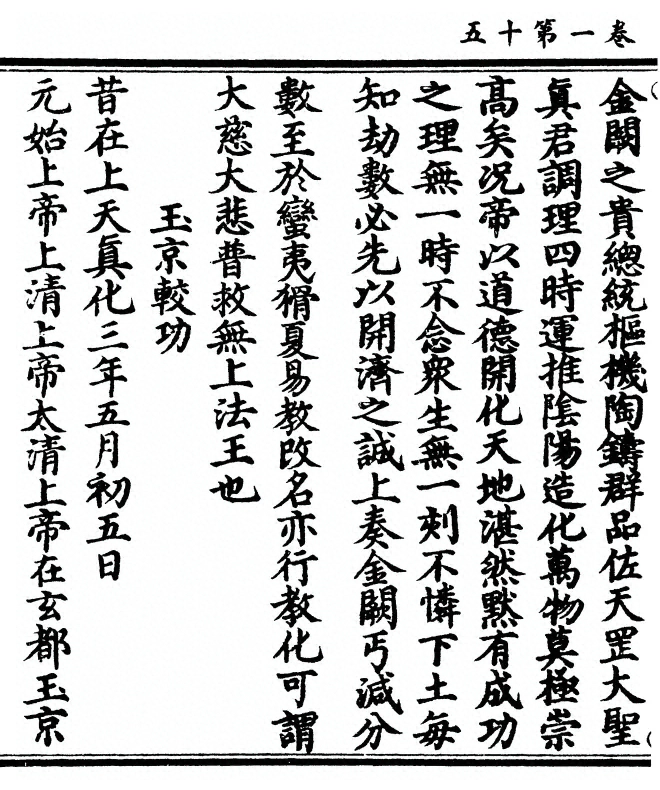 卷一第十五
金闕之貴總統樞機陶鑄群品佐天罡大聖
眞君調理四時運推陰陽造化萬物莫極崇
高矣况帝以道德開化天地湛然默有成功
之理無一時不念衆生無一刻不憐下土每
知劫數必先以開濟之誠上奏金闕丐減分
數至於蠻夷猾夏易教改名亦行教化可謂
大慈大悲普救無上法王也
玉京較功
昔在上天眞化三年五月初五日
元始上帝上清上帝太清上帝在玄都玉京